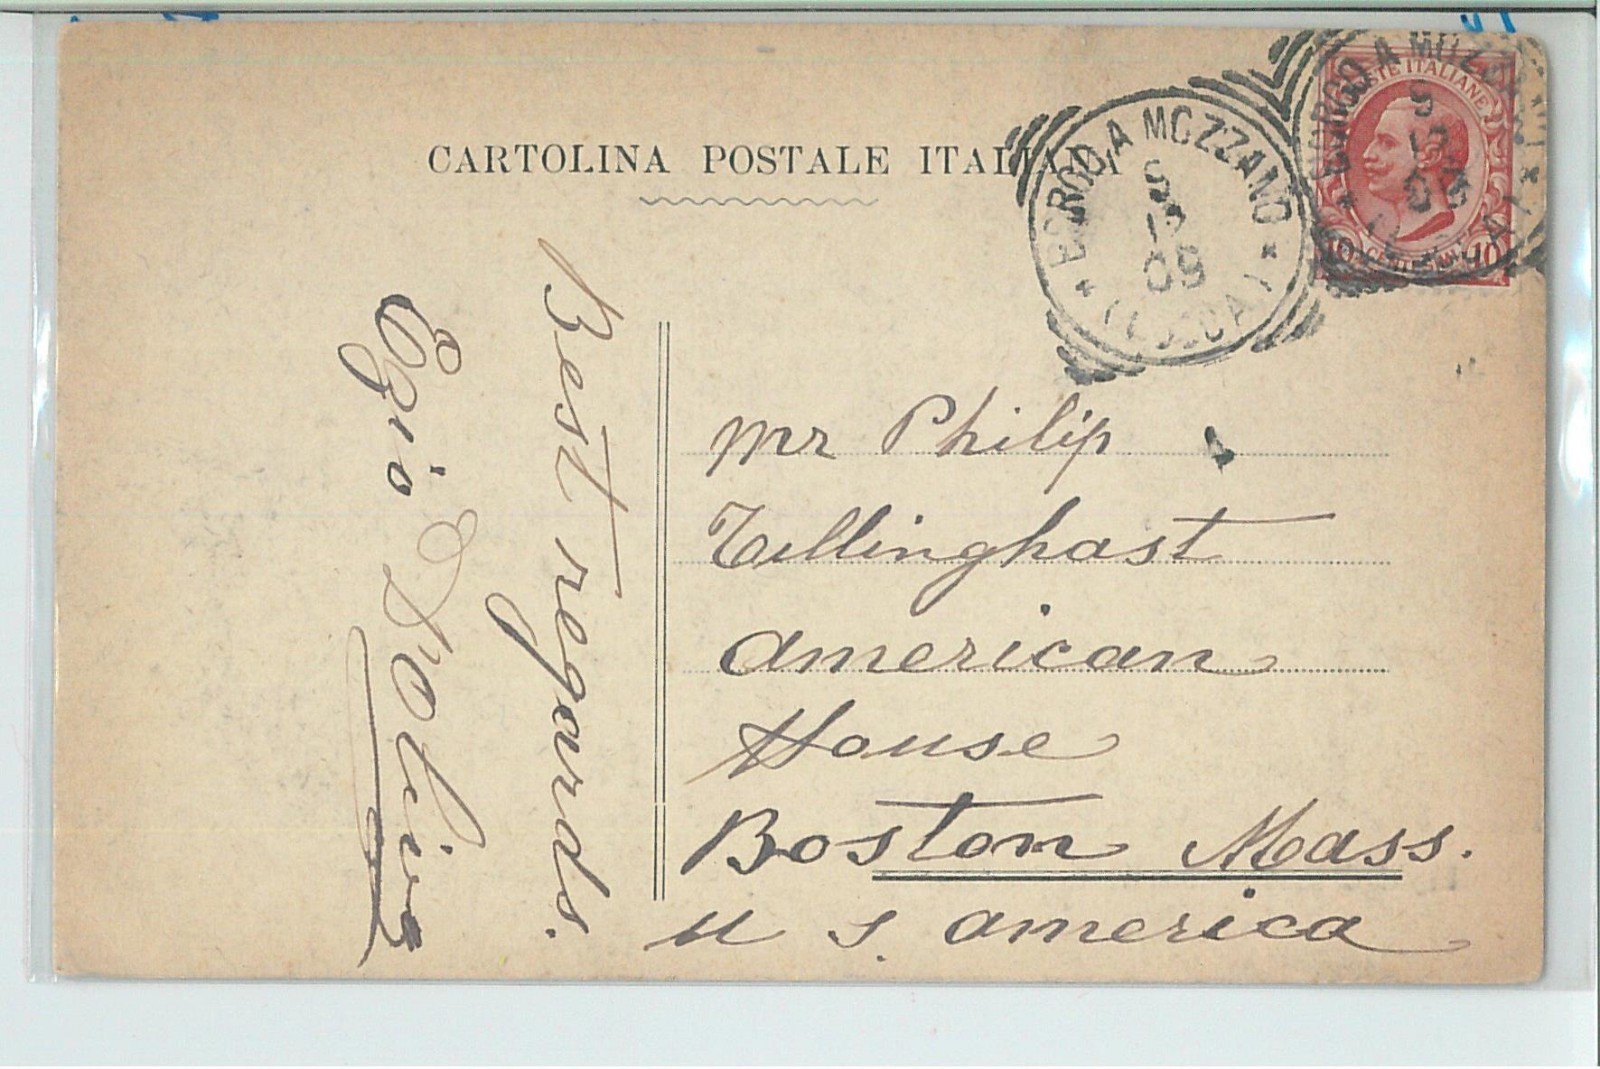 CARTOLINA POSTALE ITALIANA
BORGO A MOZZANO
(LUCCA)
09
POSTE ITALIANE
10 CENTESIMI 10
BORGO A MOZZANO
Best regards.
Ezio D'Oliva
Mr Philip
Tillinghast
American
House
Boston Mass.
U S. America